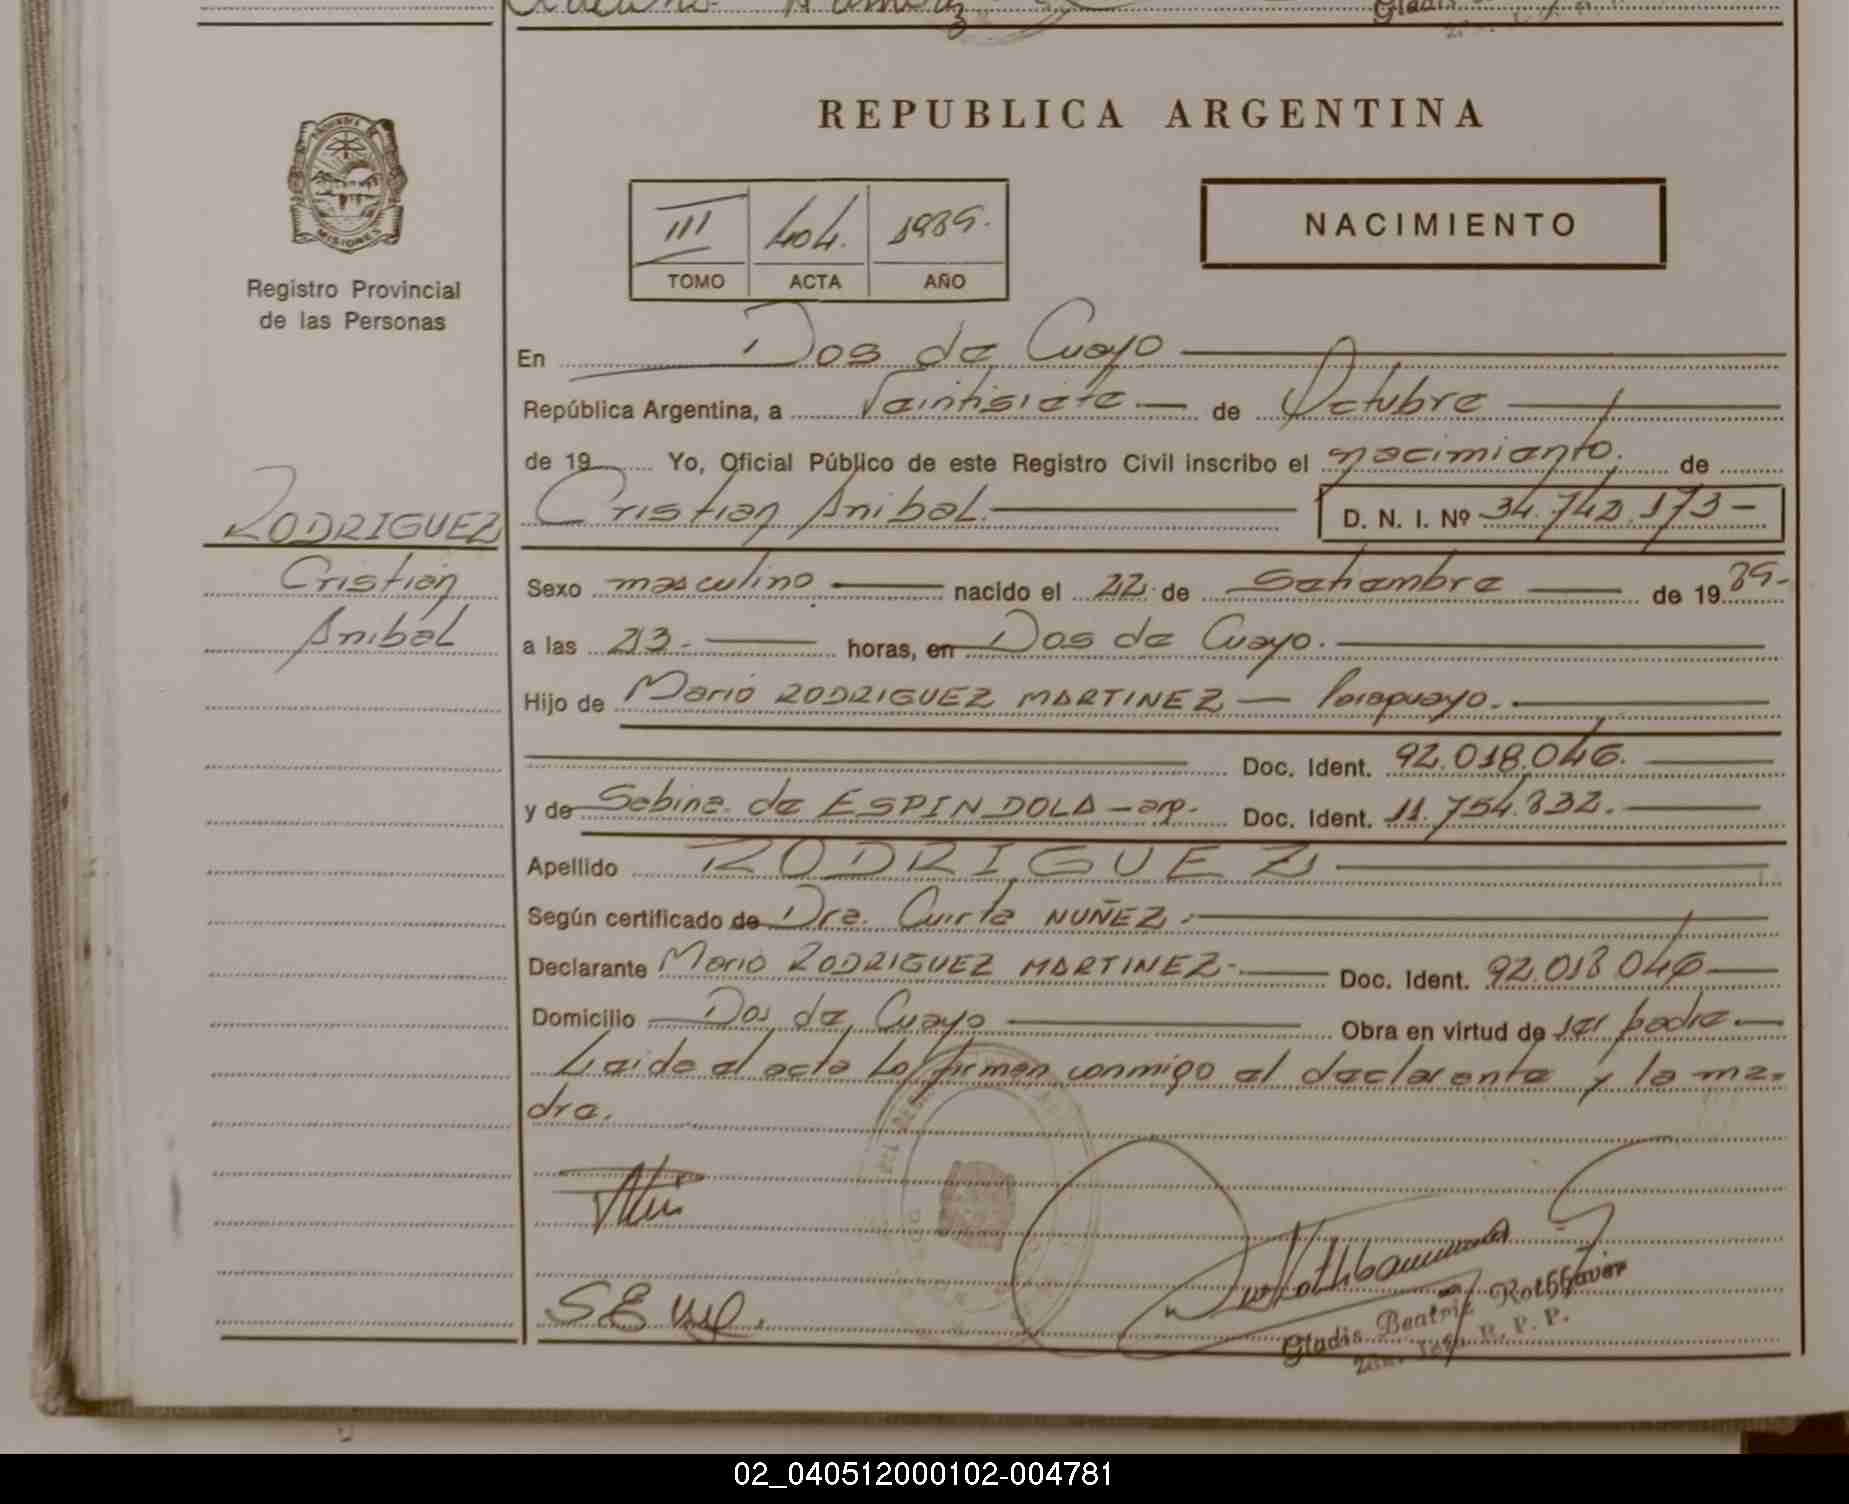 REPUBLICA ARGENTINA
PROVINCIA DE
MISIONES
Registro Provincial
de las Personas
III 404. 1989.
TOMO ACTA AÑO
NACIMIENTO
En Dos de Mayo
República Argentina, a Veintisiete de Octubre
de 19 Yo, Oficial Público de este Registro Civil inscribo el nacimiento. de
Cristian Anibal. D. N. I. Nº 34.742.173-
RODRIGUEZ
Cristian
Anibal
Sexo masculino nacido el 22 de Setiembre de 19 89.
a las 23- horas, en Dos de Mayo.
Hijo de Mario RODRIGUEZ MARTINEZ - Paraguayo.
Doc. Ident. 92.018.046.
y de Sabina de ESPINDOLA - arg. Doc. Ident. 11.754.832.
Apellido RODRIGUEZ
Según certificado de Dra. NUÑEZ.
Declarante Mario RODRIGUEZ MARTINEZ- Doc. Ident. 92.018 046
Domicilio Dos de Mayo Obra en virtud de ser padre.
Leida el acta la firman conmigo el declarante y la ma-
dre.
Gladis Beatriz
R. P. P.
02_040512000102-004781